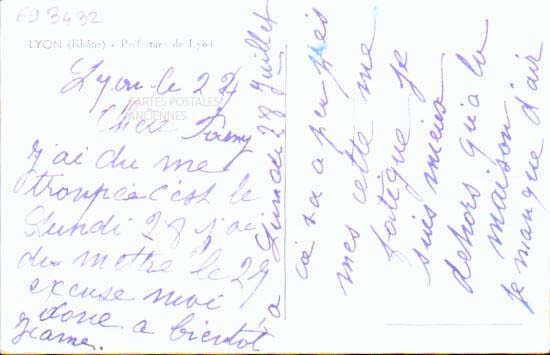 693432
LYON (Rhône) - Préfecture de Lyon
CARTES POSTALES
ANCIENNES
Lyon le 24
Chère
j'ai du me
trompée c'est le
Lundi 28 j'ai
du mettre le 29
excuse moi
donc a bientot
Jeanne.
a Lundi 28 juillet
ça va a peu près
mes cette me
fatigue je
suis mieux
dehors qu'a la
maison
je manque d'air